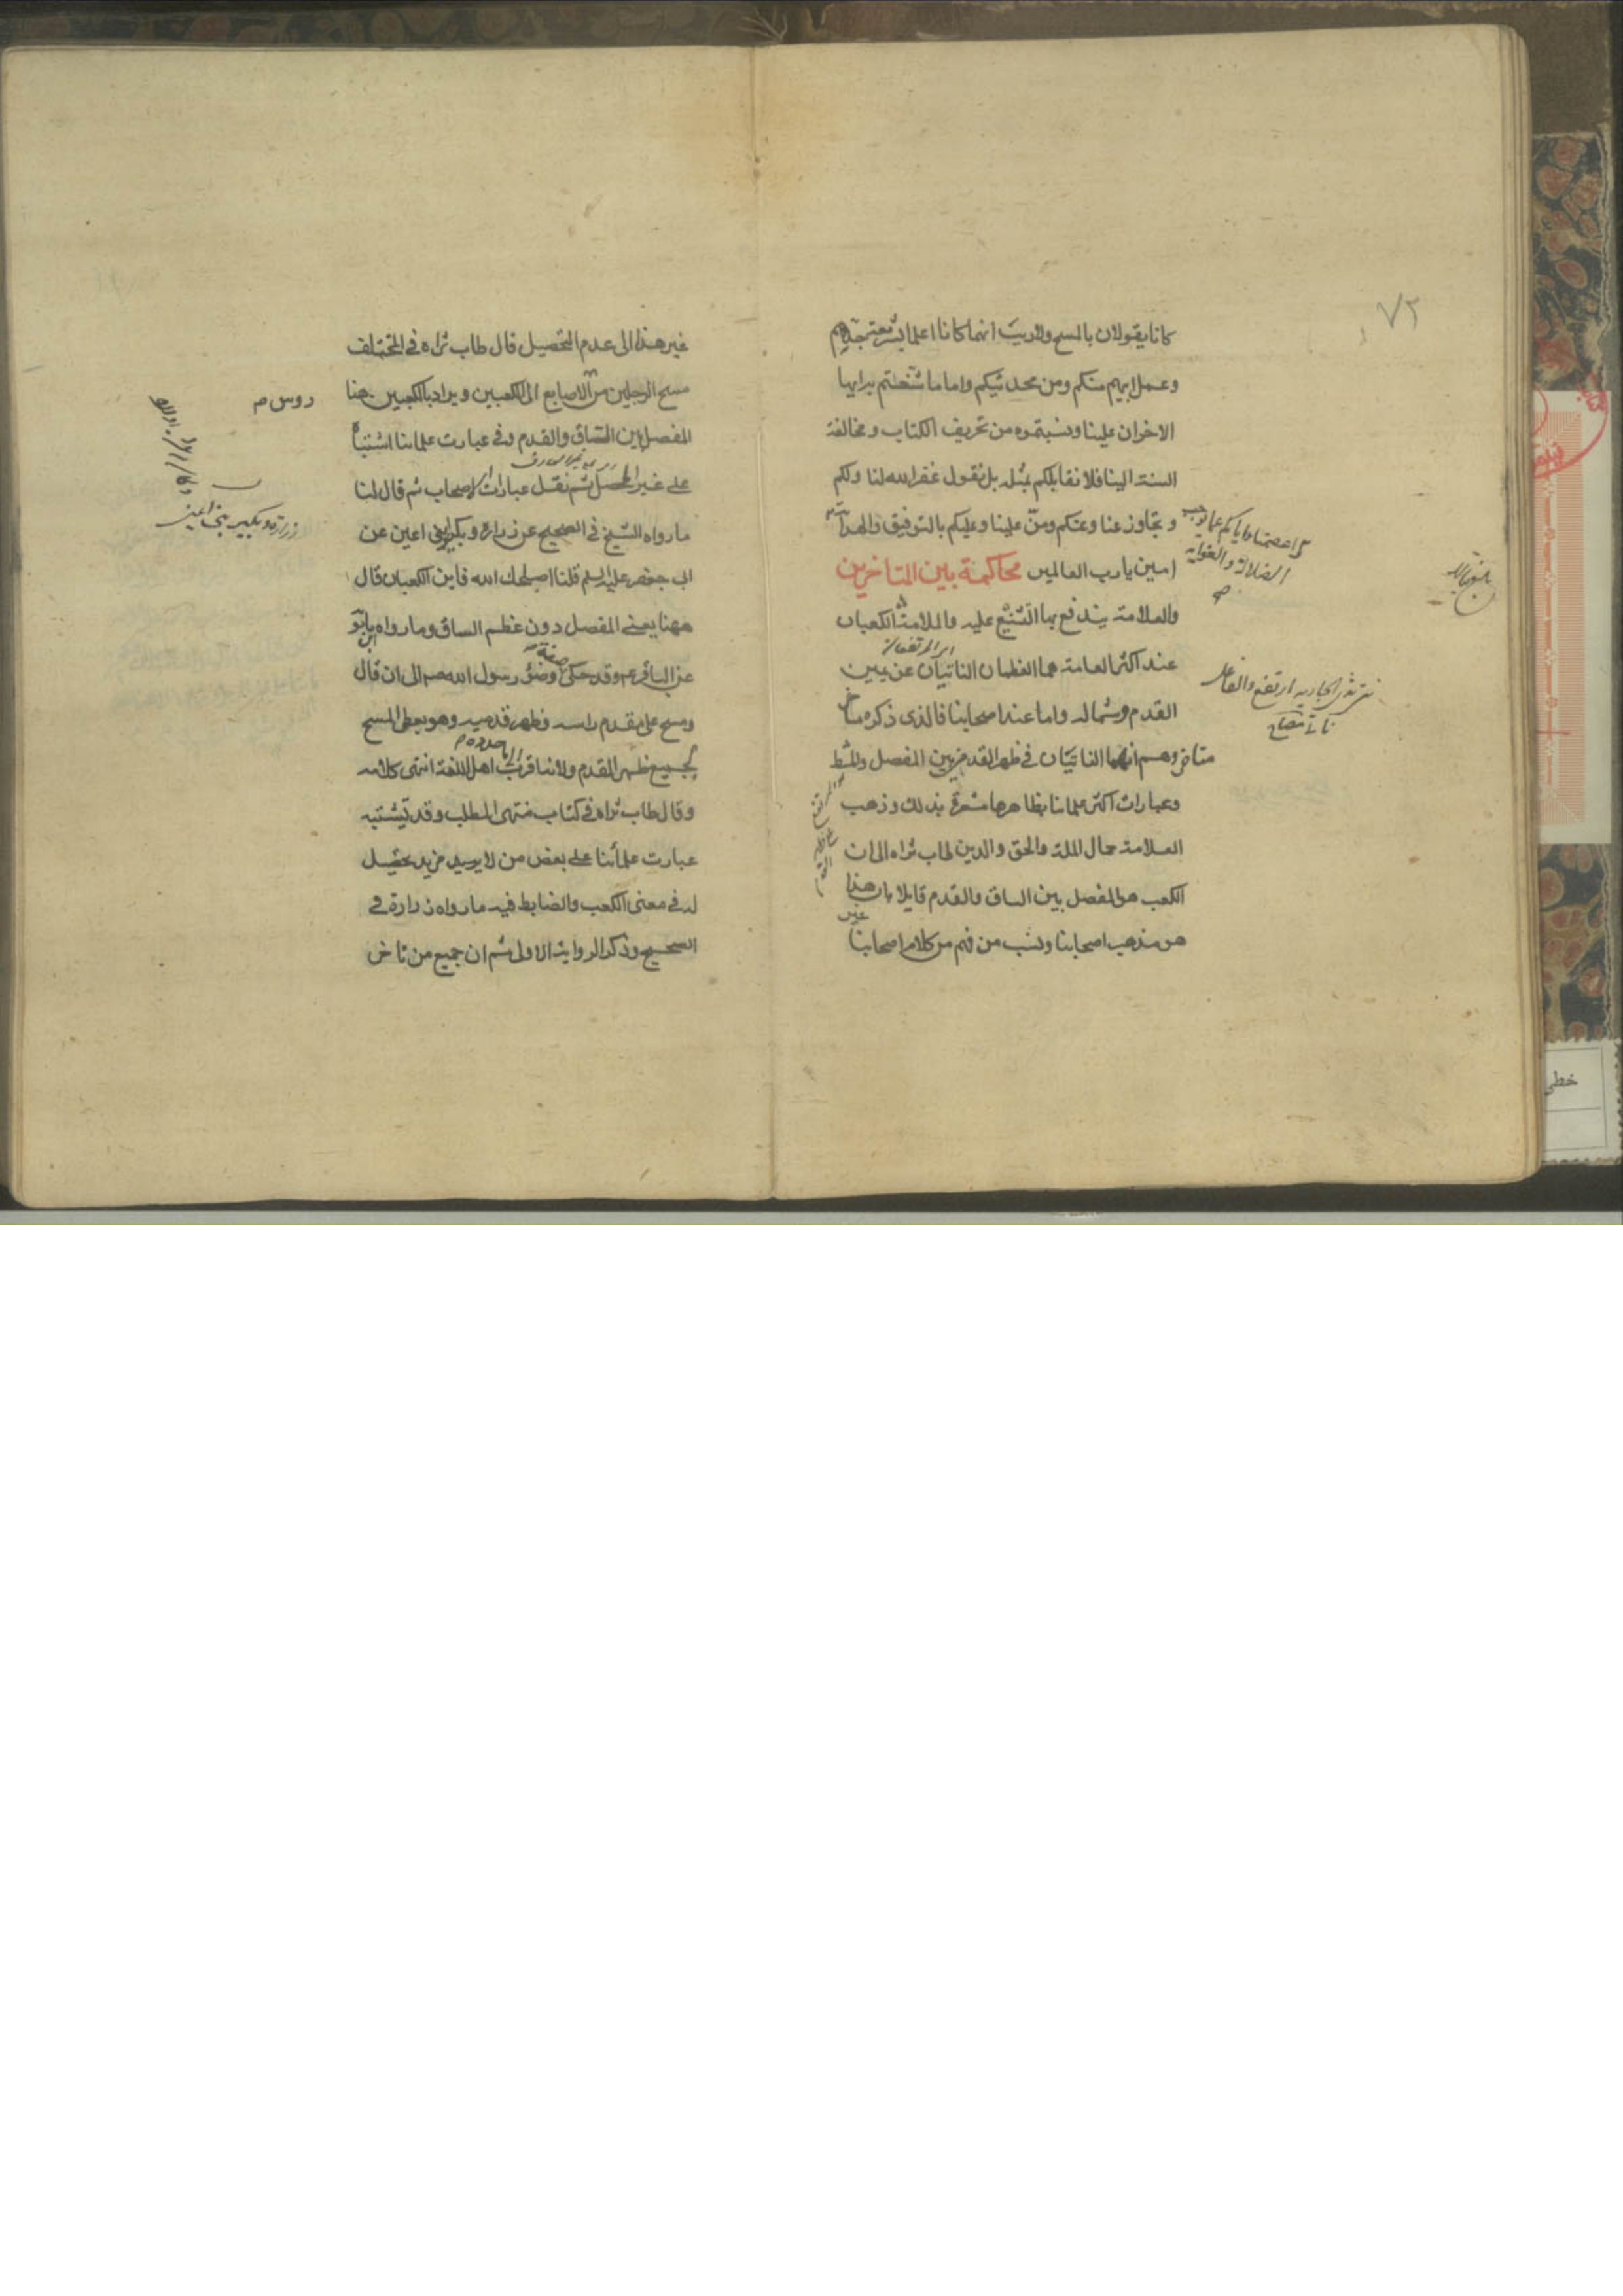 ٧٢
كانا يقولان بالمسح ولا ريب انهما كانا اعلم بشريعة جدهم
وعمل ابيهم منكم ومن محدثيكم واما ما شنعتم به ايها
الاخوان علينا ونسبتموه من تحريف الكتاب ومخالفة
السنة الينا فلا نقابلكم بمثله بل نقول غفر الله لنا ولكم
وتجاوز عنا وعنكم ومنّ علينا وعليكم بالتوفيق والهداية
امين يا رب العالمين محاكمة بين المتاخرين
والعلامة يندفع بها التشنيع عليه والملامة الكعبان
عند اكثر العامة هما العظمان الناتيان عن يمين
القدم وشماله واما عند اصحابنا فالذي ذكره
متاخروهم انهما الناتيان في ظهر القدم بين المفصل والمشط
وعبارات اكثر علمائنا بظاهرها مشعرة بذلك وذهب
العلامة جمال الملة والحق والدين طاب ثراه الى ان
الكعب هو المفصل بين الساق والقدم قايلا بان هذا
هو مذهب اصحابنا ونسب من فهم من كلام اصحابنا
غير
اي المرتفعان
واعصمنا واياكم عما يوجب
الضلالة والغواية
ارتفع والفاعل
غير هذا الى عدم التحصيل قال طاب ثراه في المختلف
مسح الرجلين من الاصابع الى الكعبين ويراد بالكعبين هنا
المفصل بين الساق والقدم وفي عبارت علمائنا اشتباه
على غير المحصل ثم نقل عبارات الاصحاب ثم قال لنا
ما رواه الشيخ في الصحيح عن زرارة وبكير ابني اعين عن
ابي جعفر عليه السلم قلنا اصلحك الله فاين الكعبان قال
ههنا يعني المفصل دون عظم الساق وما رواه ابن بابويه
عن الباقر ع وقد حكى صفة وضوء رسول الله ص الى ان قال
ومسح على مقدم راسه وظهر قدميه وهو يعطي المسح
لجميع ظهر القدم ولانه اقرب الى ما حدده اهل اللغة انتهى كلامه
وقال طاب ثراه في كتاب منتهى المطلب وقد تشتبه
عبارت علمائنا على بعض من لا يريد مزيد تحصيل
له في معنى الكعب والضابط فيه ما رواه زرارة في
الصحيح وذكر الرواية الاولى ثم ان جميع من تاخر
زرارة وبكير بني اعين
خطي